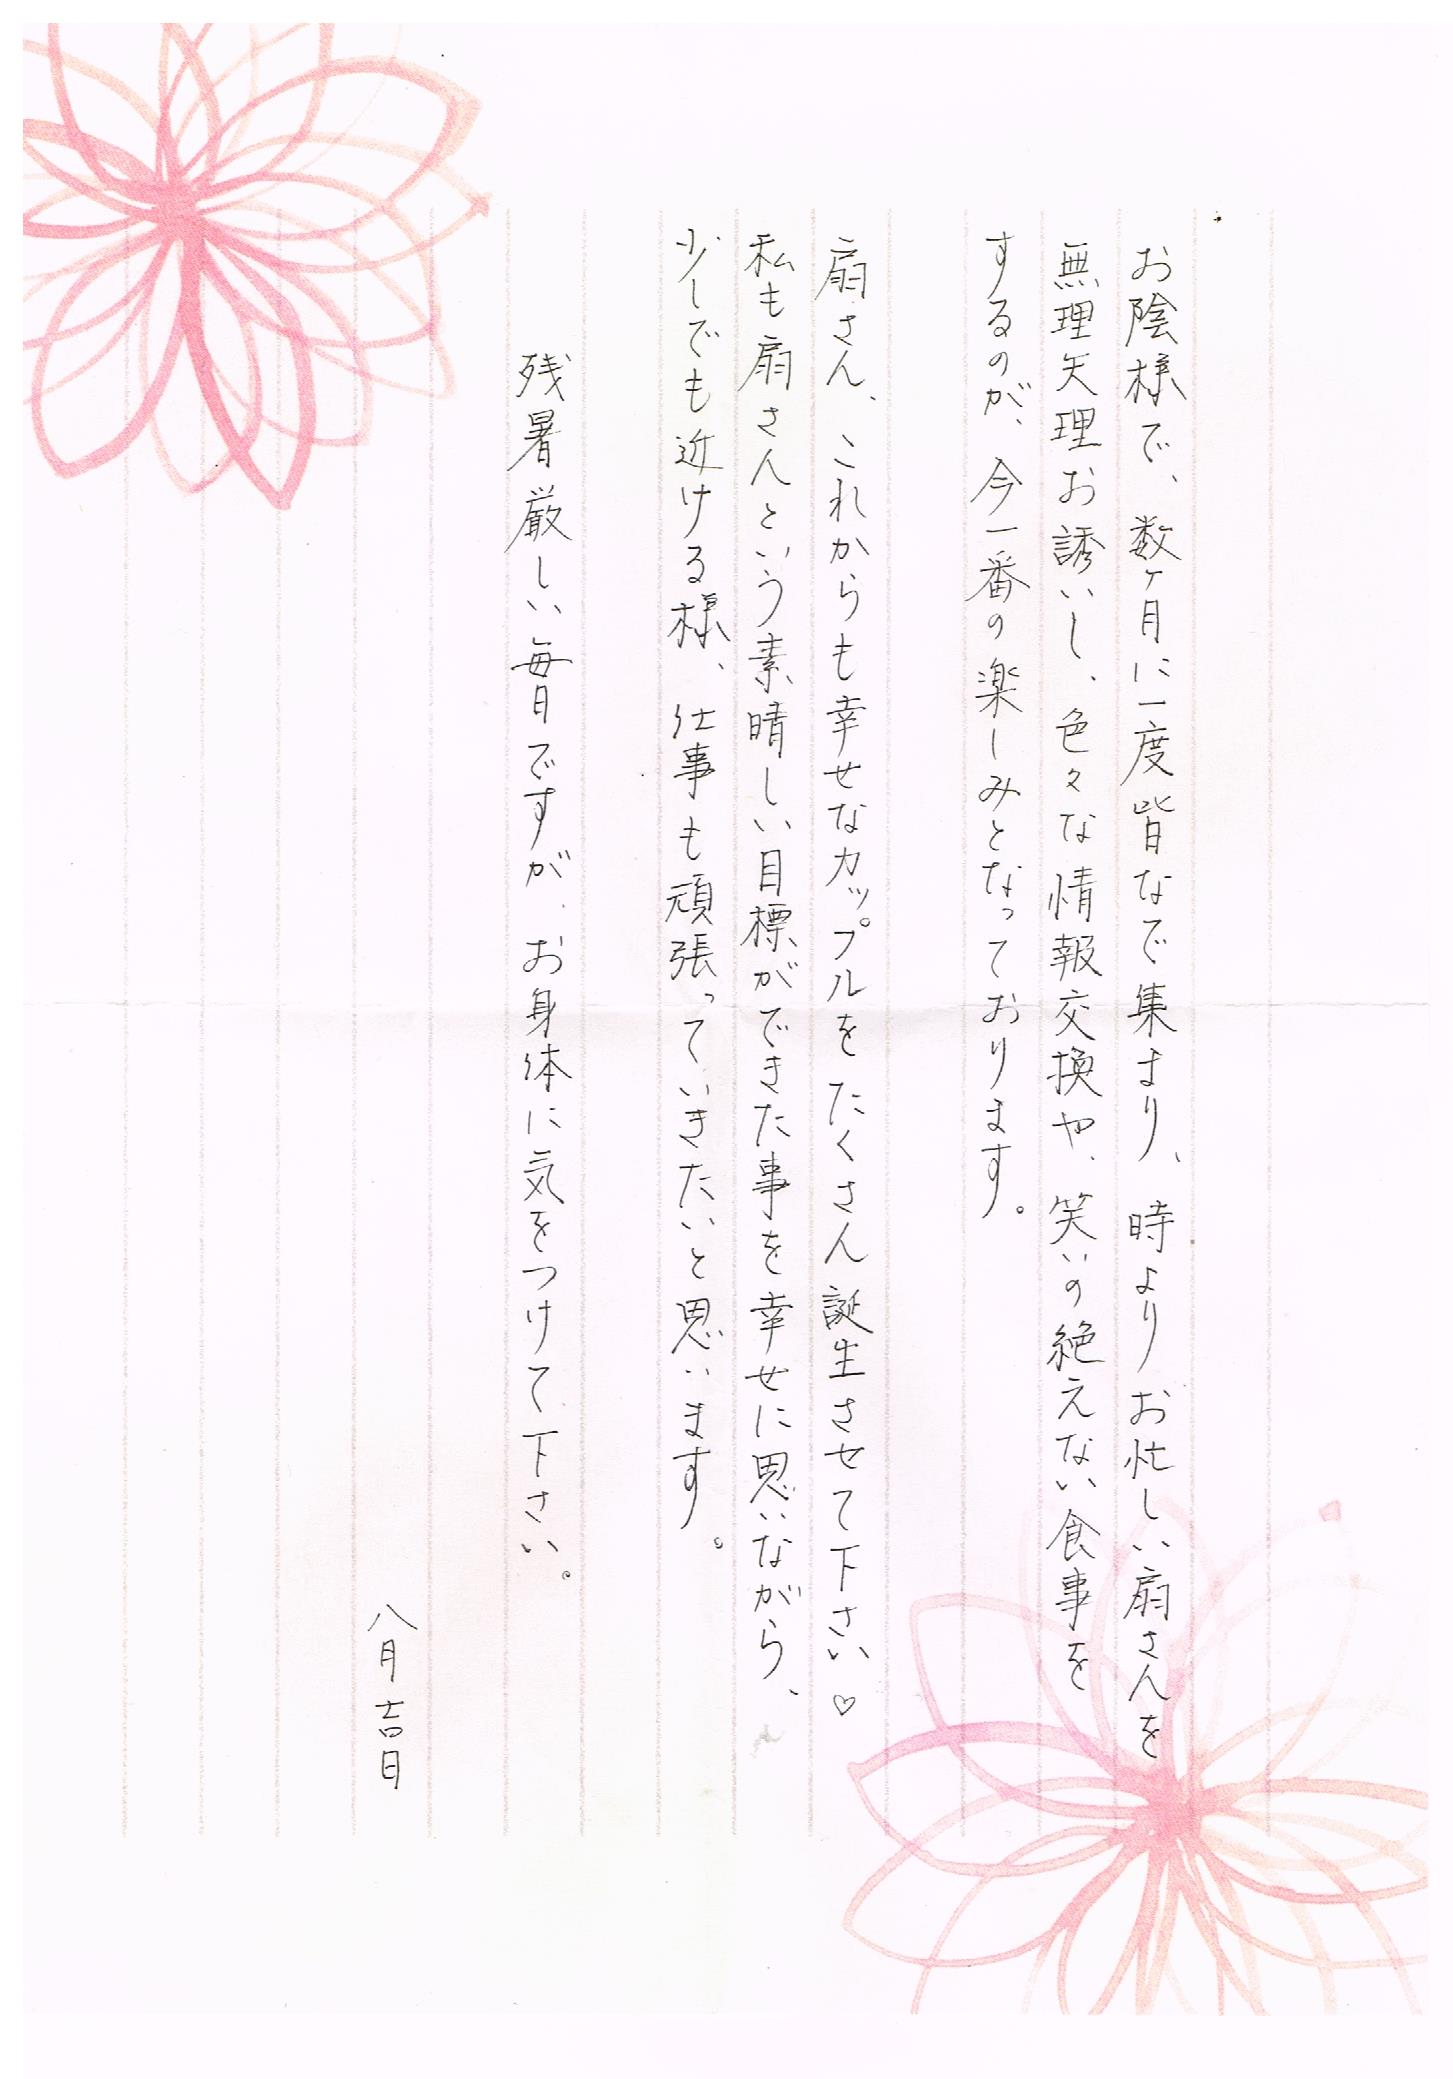 お陰様で、数ヶ月に一度皆なで集まり、時よりお忙しい扇さんを
無理矢理お誘いし、色々な情報交換や、笑いの絶えない食事を
するのが、今一番の楽しみとなっております。
扇さん、これからも幸せなカップルをたくさん誕生させて下さい♡
私も扇さんという素晴しい目標ができた事を幸せに思いながら、
少しでも近ける様、仕事も頑張っていきたいと思います。
残暑厳しい毎日ですが、お身体に気をつけて下さい。
八月吉日